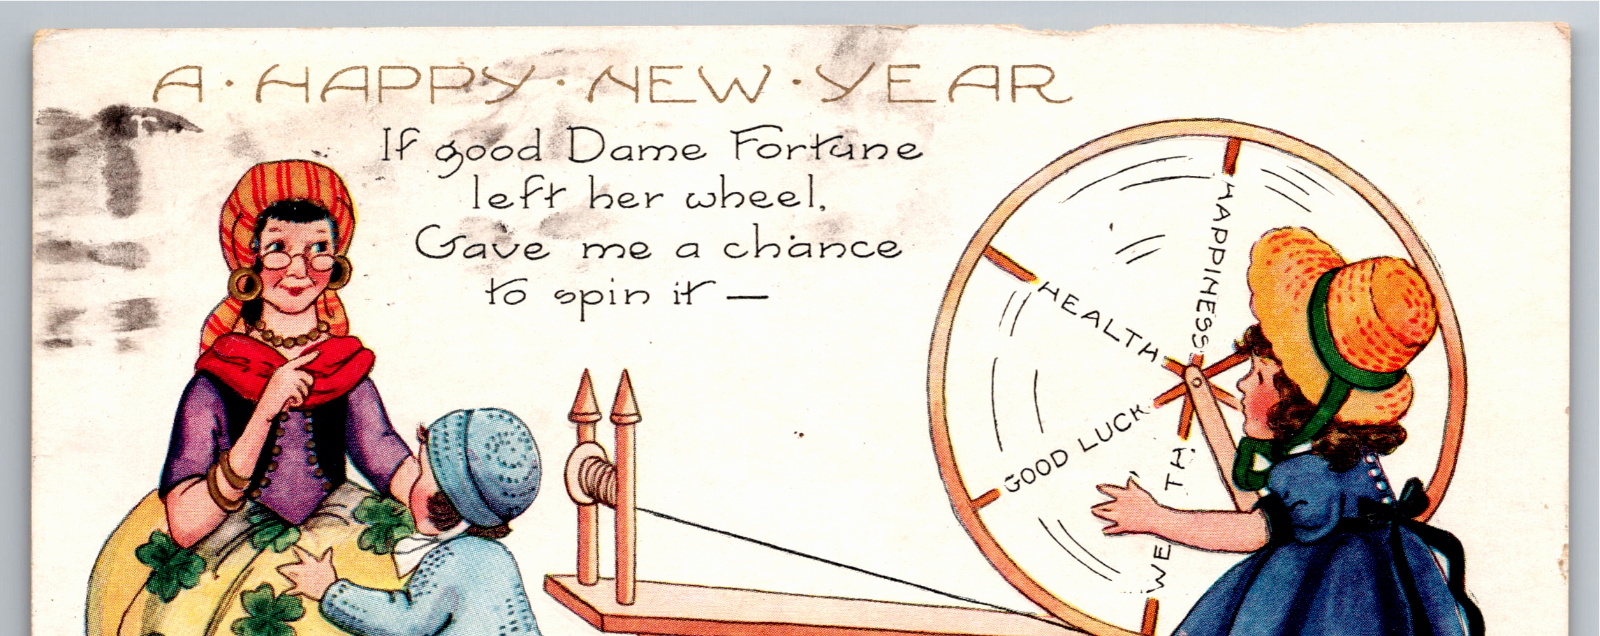 A · HAPPY · NEW · YEAR
If good Dame Fortune
left her wheel,
Gave me a chance
to spin it —
HAPPINESS
HEALTH
GOOD LUCK
WE TH